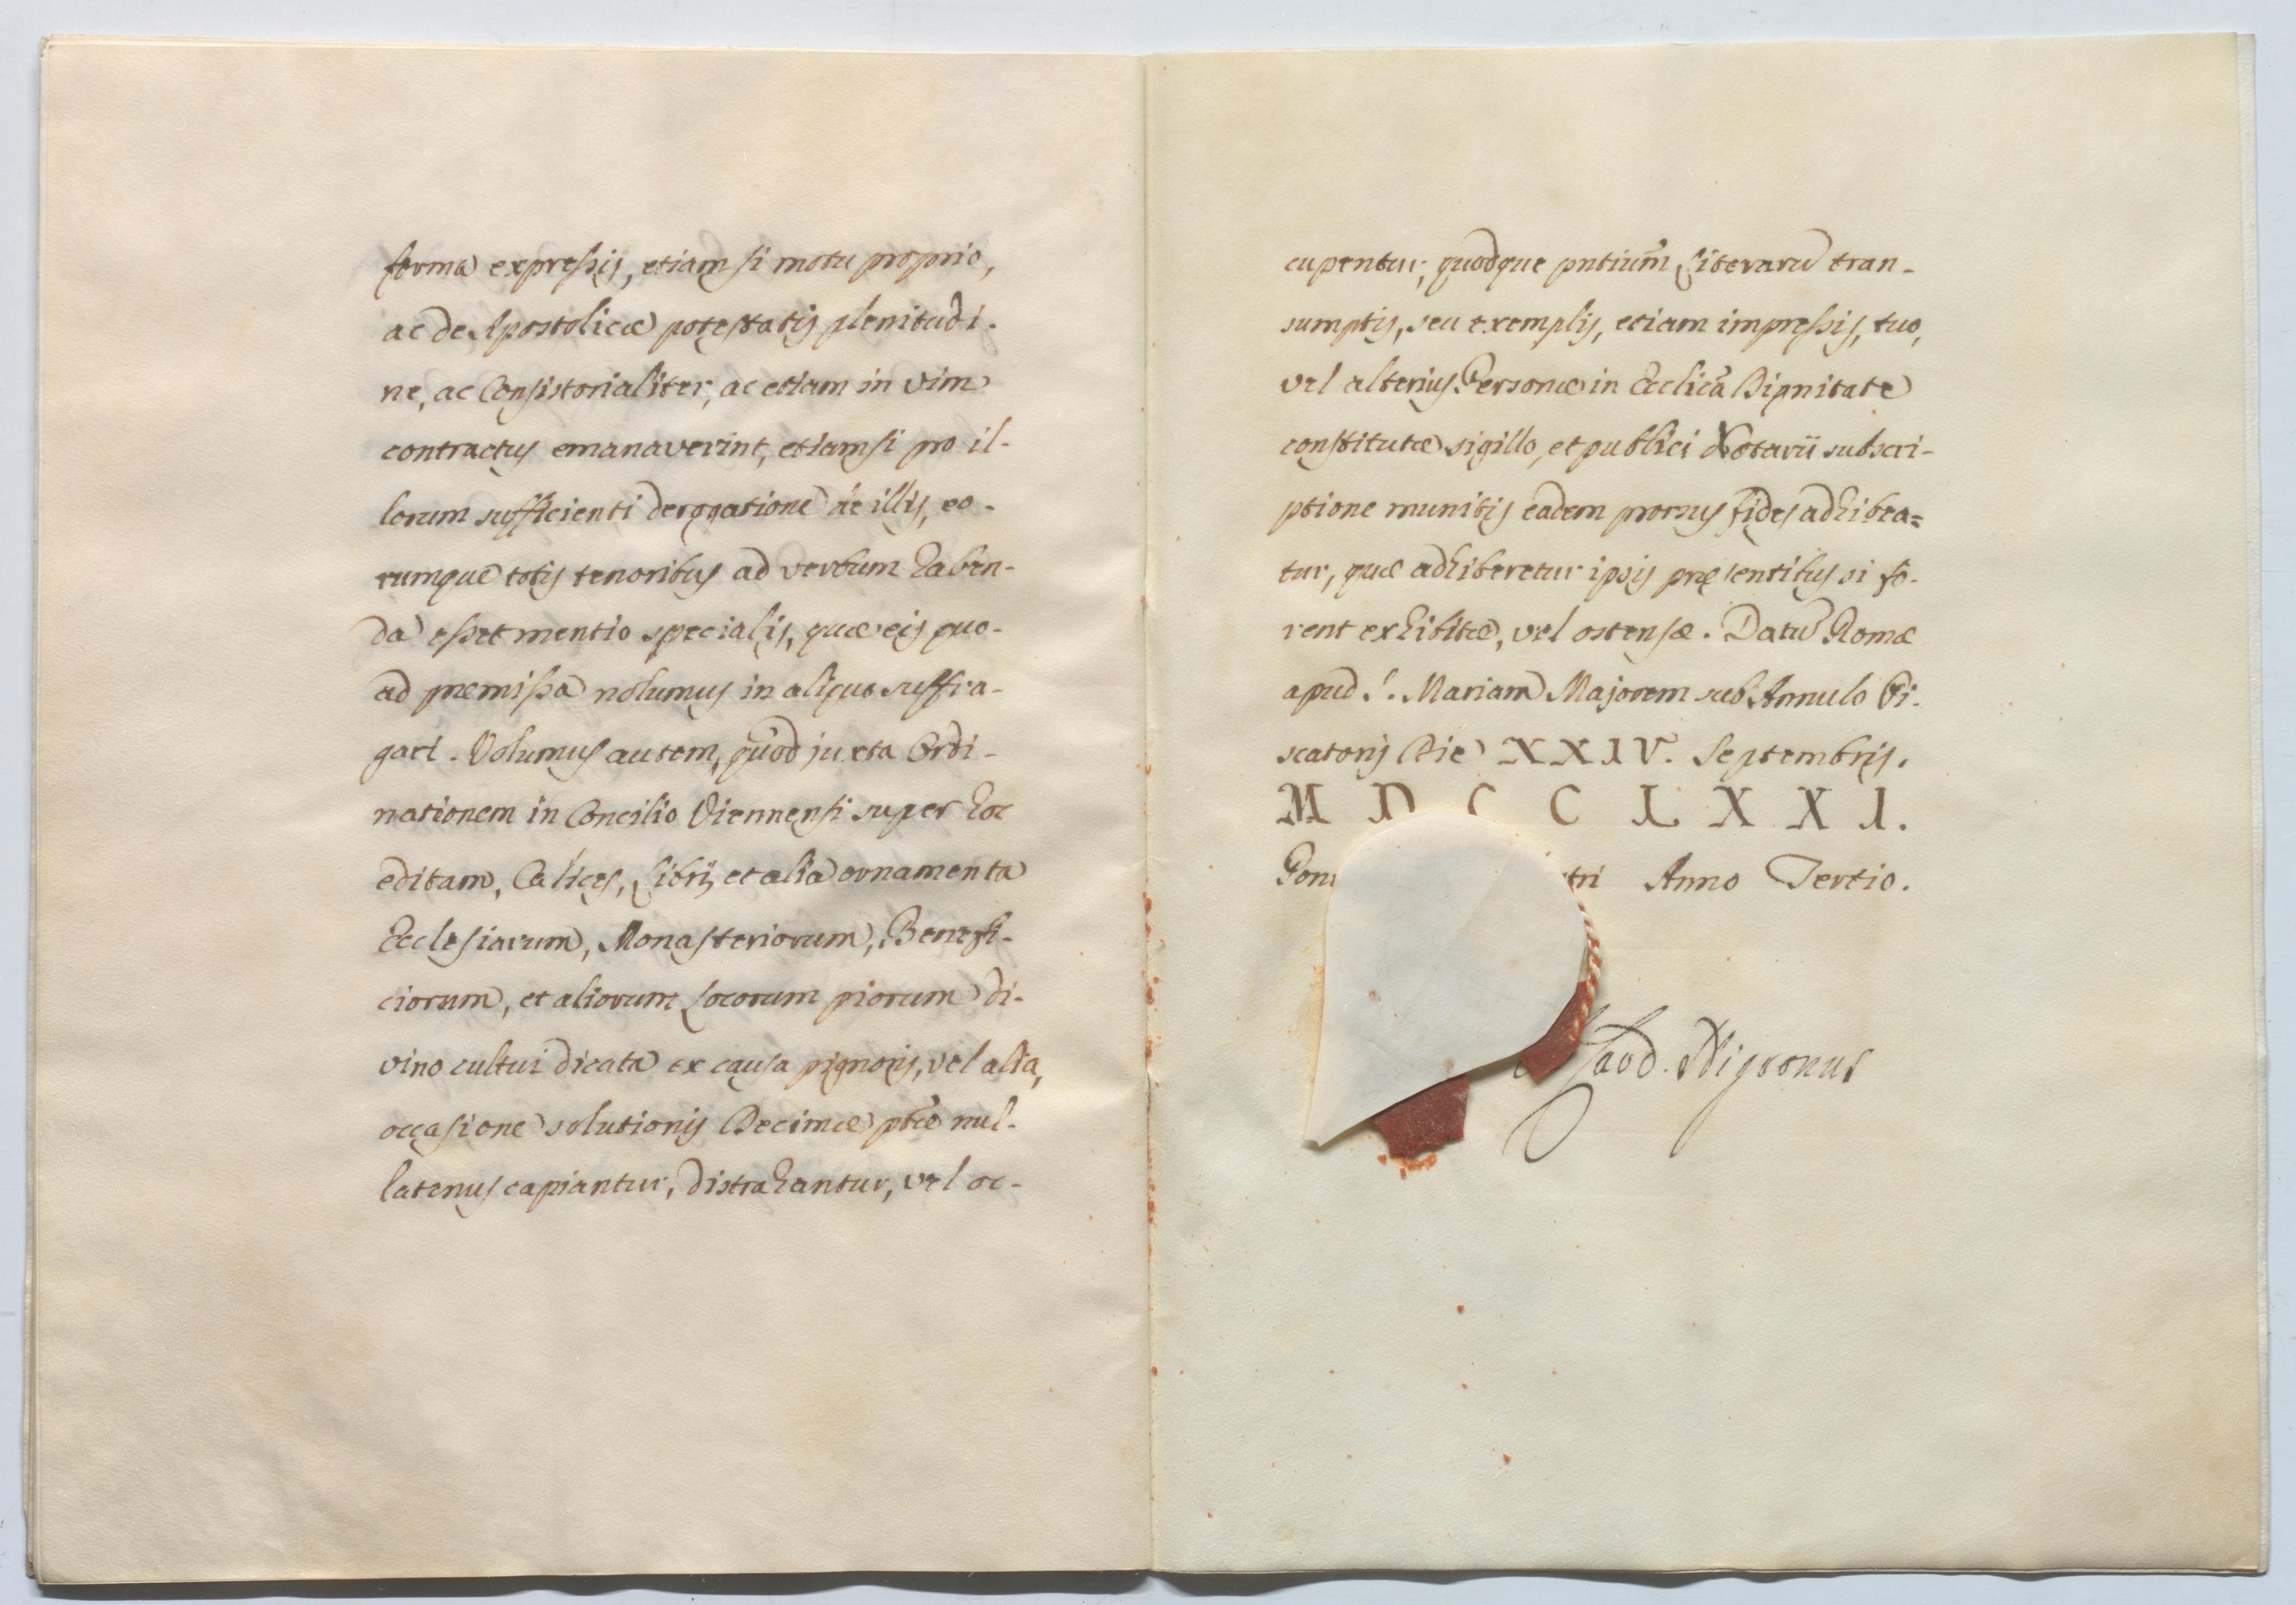 forma expressis, etiam si motu proprio,
ac de Apostolicæ potestatis plenitudi-
ne, ac Consistorialiter, ac etiam in vim
contractus emanaverint, etiamsi pro il-
lorum sufficienti derogatione de illis, eo-
rumque totis tenoribus ad verbum haben-
da esset mentio specialis, quæ eis quo-
ad premissa nolumus in aliquo suffra-
gari. Volumus autem, quod juxta Ordi-
nationem in Concilio Viennensi super hoc
editam, Calices, Libri, et alia ornamenta
Ecclesiarum, Monasteriorum, Benefi-
ciorum, et aliorum Locorum piorum di-
vino cultui dicata ex causa pignoris, vel alia,
occasione solutionis Decimæ ptæ nul-
latenus capiantur, distrahantur, vel oc-
cupentur, quodque pntium Literaru tran-
sumptis, seu exemplis, etiam impressis, tuo,
vel alterius Personæ in Ecclica Dignitate
constitutæ sigillo, et publici Notarii subscri-
ptione munitis eadem prorsus fides adhibea=
tur, quæ adhiberetur ipsis pręsentibus si fo-
rent exhibitæ, vel ostensæ. Datu Romæ
apud S. Mariam Majorem sub Annulo Pi-
scatoris Die XXIV. Septembris.
M D C C L X X I.
Pon tri Anno Tertio.
Nigronus